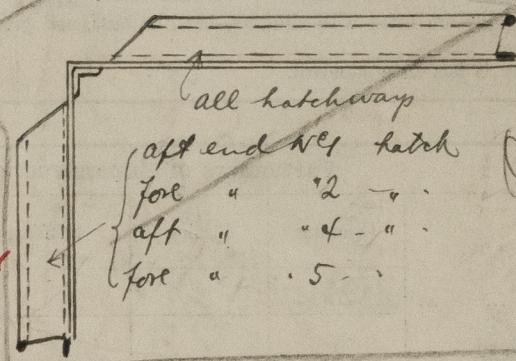 all hatchways
aft end No1 hatch
fore " " 2 - " .
aft " " 4 - " .
fore " . 5 - .